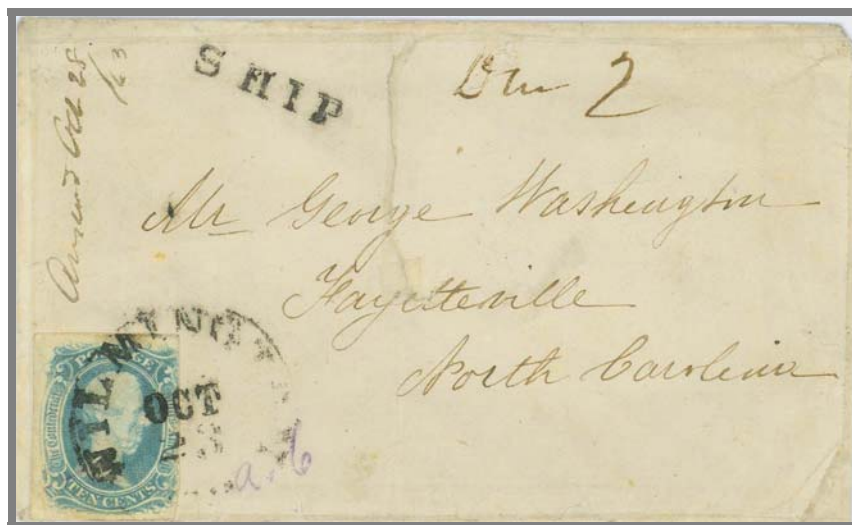 SHIP
Due 2
Oct 28
/63
Mr George Washington
Fayetteville
North Carolina
WILMINGTON
OCT
POSTAGE
The Confederate
TEN CENTS
a.6